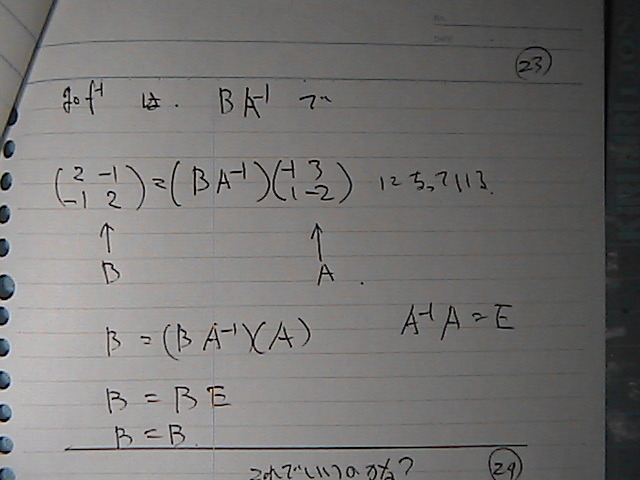 No.
DATE
㉓
g∘f⁻¹ は. BA⁻¹ で
(2 -1 / -1 2) = (BA⁻¹)(-1 3 / 1 -2) になっている.
↑ ↑
B A.
B = (BA⁻¹)(A) A⁻¹A = E
B = BE
B = B.
これでいいのかな? ㉔